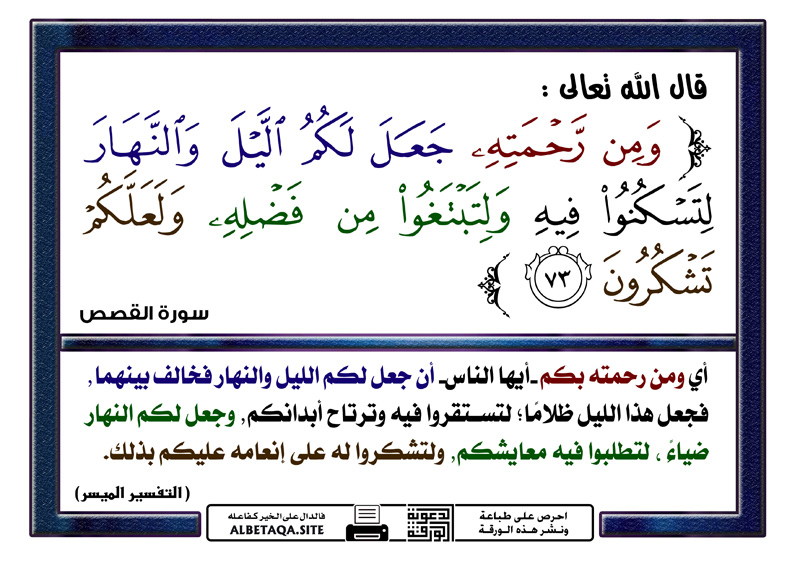 قال الله تعالى :
﴿ وَمِن رَّحْمَتِهِۦ جَعَلَ لَكُمُ ٱلَّيْلَ وَٱلنَّهَارَ
لِتَسْكُنُوا۟ فِيهِ وَلِتَبْتَغُوا۟ مِن فَضْلِهِۦ وَلَعَلَّكُمْ
تَشْكُرُونَ ٧٣ ﴾
سورة القصص
أي ومن رحمته بكم ـأيها الناســ أن جعل لكم الليل والنهار فخالف بينهما,
فجعل هذا الليل ظلامًا؛ لتستقروا فيه وترتاح أبدانكم, وجعل لكم النهار
ضياءً ، لتطلبوا فيه معايشكم, ولتشكروا له على إنعامه عليكم بذلك.
(التفسير الميسر)
احرص على طباعة
ونشر هذه الورقة
الدعوية
الورقة
فالدال على الخير كفاعله
ALBETAQA.SITE